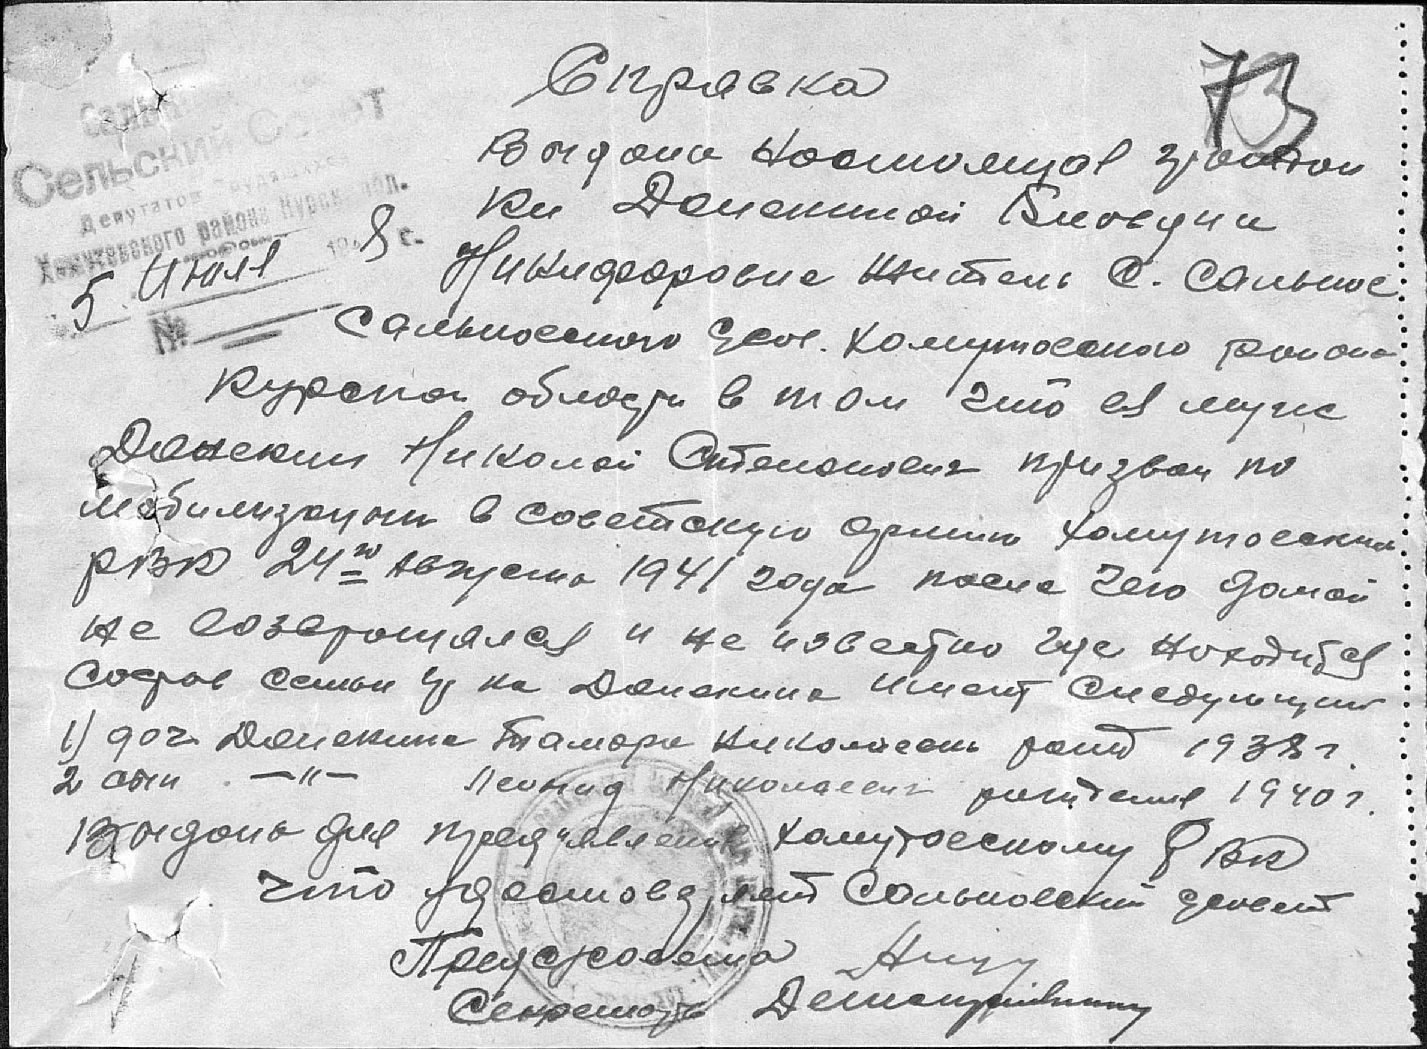 Справка
73
Сельский Совет
Депутатов Трудящихся
Хомутовского района Курск. обл.
5 Июля 194 8 г.
№
Выдана настоящая граждан
ки Донскиной
Никифоровне житель С. Сальное
Сальновского с/сов. Хомутовского района
Курской области в том что ея муж
Донскин Николай Степанович призван по
мобилизации в советскую армию Хомутовским
РВК 24го Августа 1941 года после чего домой
не возвращался и не известно где находится
Состав семьи гр ка Донскина имеет следующий
1) доч Донскина Тамара Николаевн рожд 1938 г.
2 сын —"— Леонид Николаевич рождения 1940 г.
Выдана для предъявления Хомутовскому РВК
что удостоверяет Сальновский с/совет
Пред с/совета
Секретарь